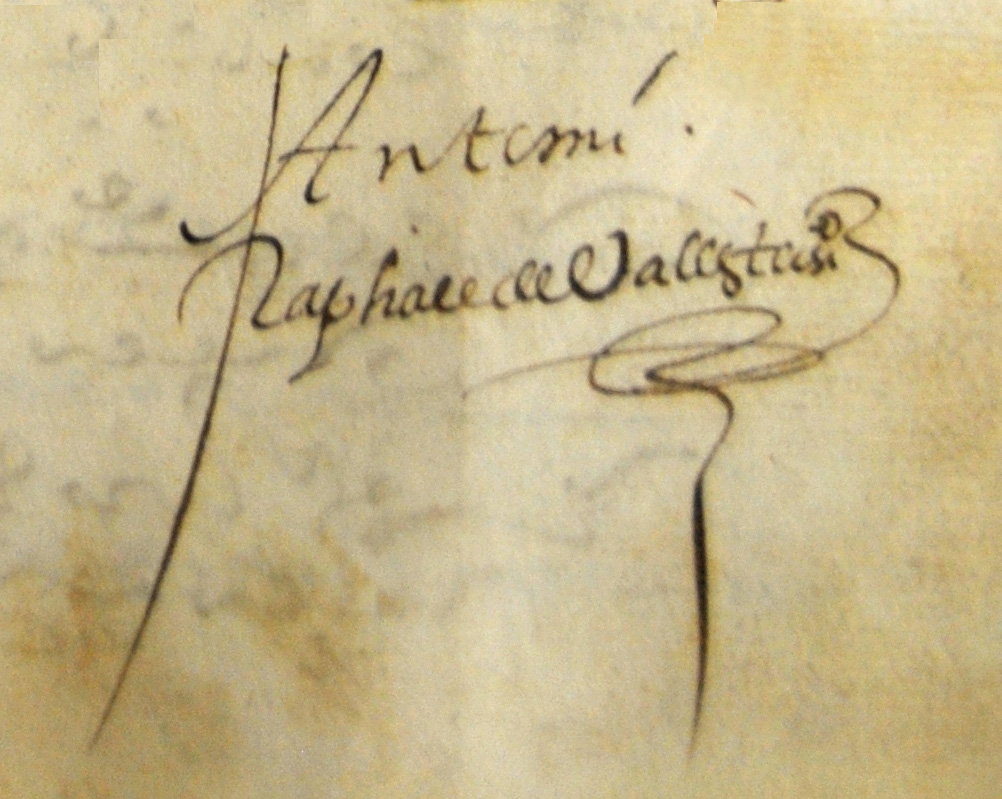 Ante mí.
Raphael de Vallestero